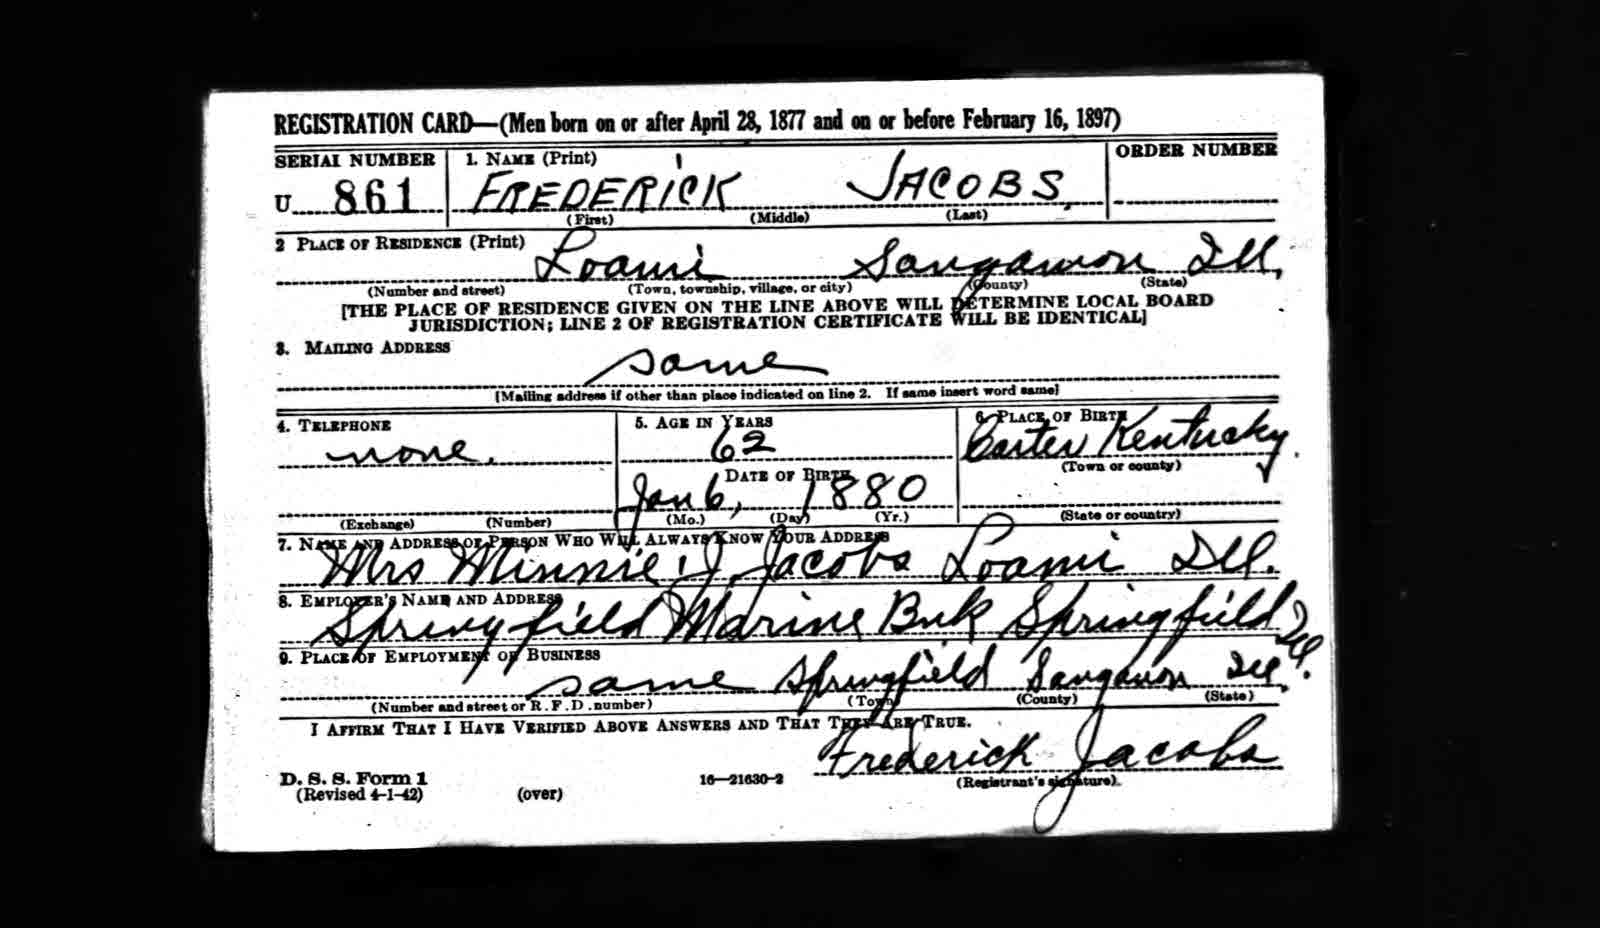 REGISTRATION CARD—(Men born on or after April 28, 1877 and on or before February 16, 1897)
SERIAL NUMBER 1. NAME (Print) ORDER NUMBER
U 861 FREDERICK JACOBS.
(First) (Middle) (Last)
2 PLACE OF RESIDENCE (Print)
Loami Sangamon Ill.
(Number and street) (Town, township, village, or city) (County) (State)
[THE PLACE OF RESIDENCE GIVEN ON THE LINE ABOVE WILL DETERMINE LOCAL BOARD
JURISDICTION; LINE 2 OF REGISTRATION CERTIFICATE WILL BE IDENTICAL]
3. MAILING ADDRESS
same
[Mailing address if other than place indicated on line 2. If same insert word same]
4. TELEPHONE 5. AGE IN YEARS 6. PLACE OF BIRTH
none. 62 Carter Kentucky.
(Town or county)
DATE OF BIRTH
Jan 6, 1880
(Exchange) (Number) (Mo.) (Day) (Yr.) (State or country)
7. NAME AND ADDRESS OF PERSON WHO WILL ALWAYS KNOW YOUR ADDRESS
Mrs Minnie J. Jacobs Loami Ill.
8. EMPLOYER'S NAME AND ADDRESS
Springfield Marine Bnk Springfield Ill.
9. PLACE OF EMPLOYMENT OR BUSINESS
same Springfield Sangamon Ill.
(Number and street or R.F.D. number) (Town) (County) (State)
I AFFIRM THAT I HAVE VERIFIED ABOVE ANSWERS AND THAT THEY ARE TRUE.
Frederick Jacobs
D. S. S. Form 1 16—21630-2 (Registrant's signature)
(Revised 4-1-42) (over)